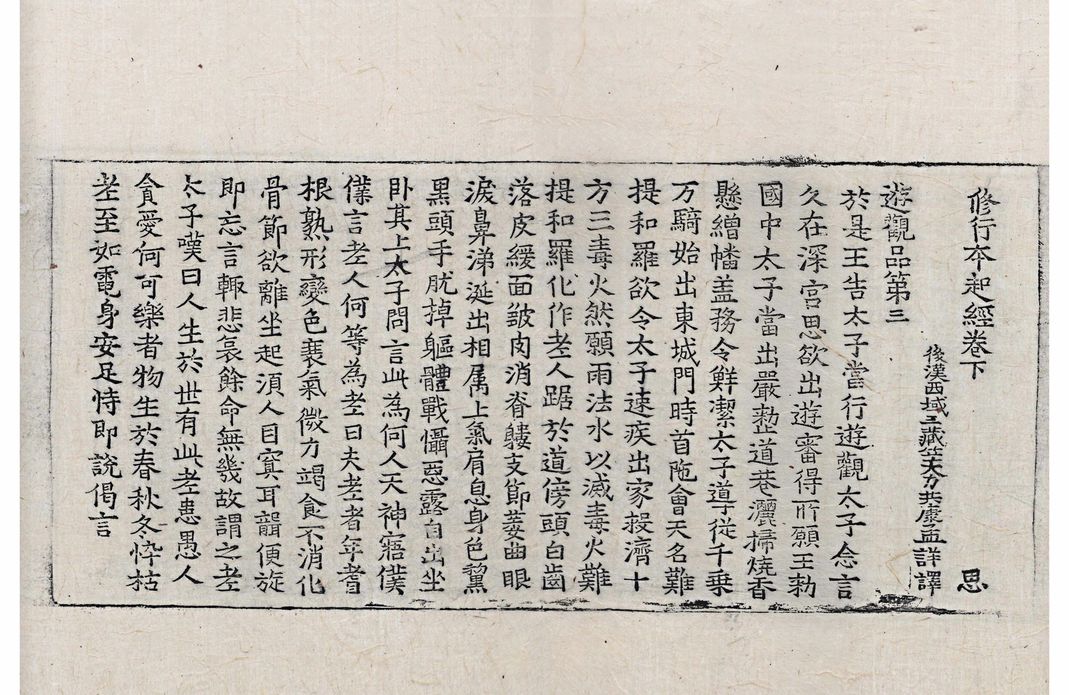 修行本起經卷下 思
後漢西域三藏竺大力共康孟詳譯
遊觀品第三
於是王告太子當行遊觀太子念言
久在深宮思欲出遊審得所願王勑
國中太子當出嚴整道巷灑掃燒香
懸繒幡盖務令鮮潔太子導從千乘
万騎始出東城門時首陁會天名難
提和羅欲令太子速疾出家授濟十
方三毒火然願雨法水以滅毒火難
提和羅化作老人踞於道傍頭白齒
落皮緩面皺肉消脊僂支節萎曲眼
淚鼻涕涎出相属上氣肩息身色黧
黑頭手肬掉軀體戰慴惡露自出坐
卧其上太子問言此為何人天神寤僕
僕言老人何等為老曰夫老者年耆
根熟形變色衰氣微力竭食不消化
骨節欲離坐起湏人目冥耳聾便旋
即忘言輙悲哀餘命無幾故謂之老
太子嘆曰人生於世有此老患愚人
貪愛何可樂者物生於春秋冬悴枯
老至如電身安足恃即說偈言